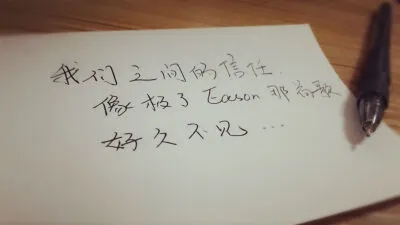 我们之间的信任.
像极了 Eason 那首歌
好久不见 ...